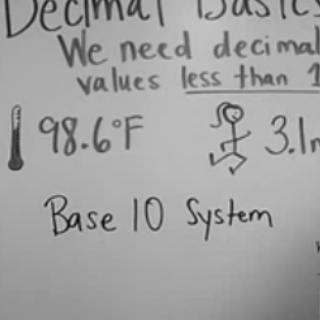 Decimal Basics
We need decimal
values less than 1
98.6°F 3.1
Base 10 System